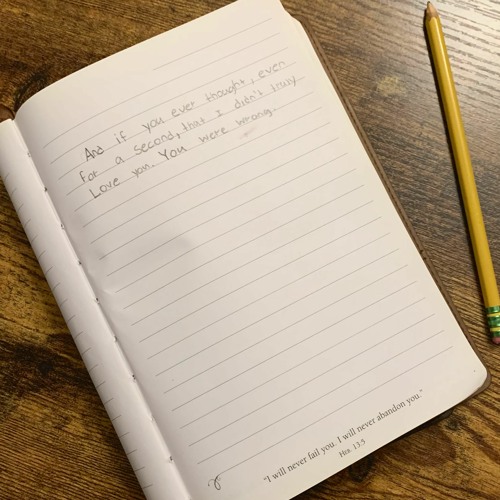 And if you ever thought, even
for a second, that I didn't truly
Love you. You were wrong.
"I will never fail you. I will never abandon you."
Heb. 13:5